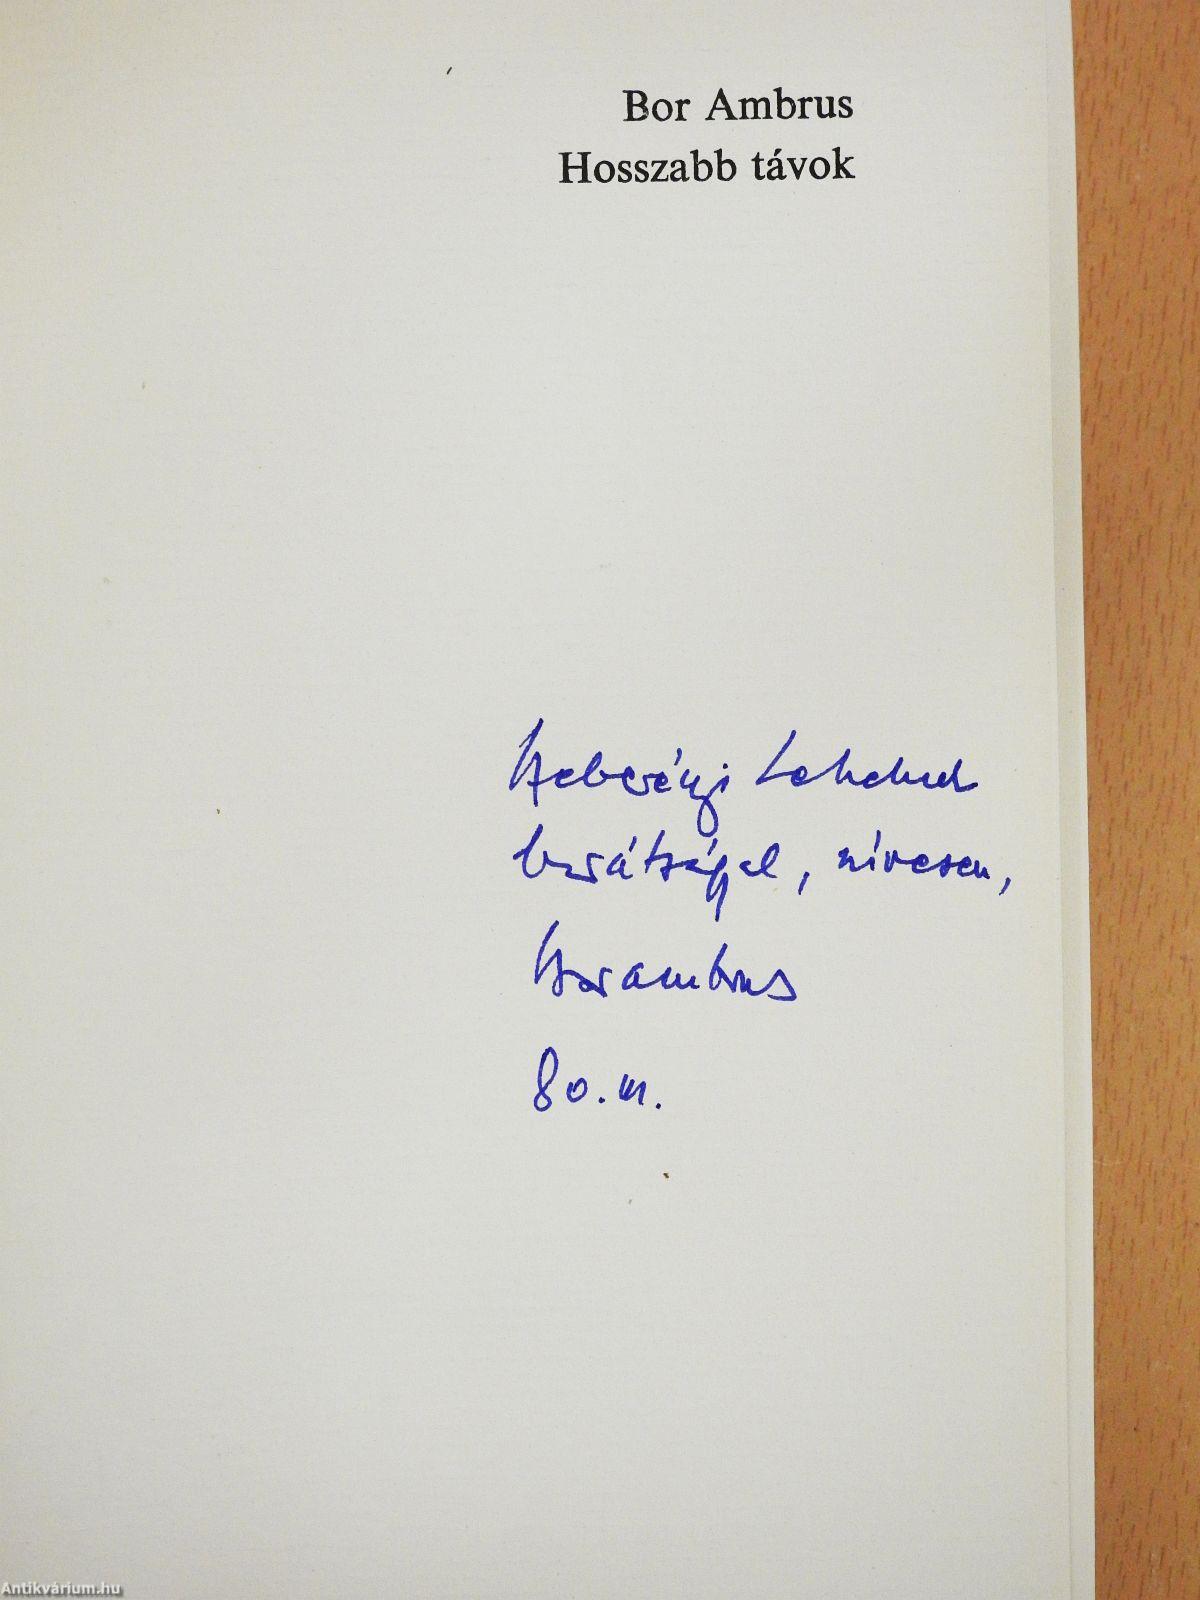 Bor Ambrus
Hosszabb távok
Heberényi Lehelnek
barátsággal, szívesen,
Borambrus
80. III.
Antikvárium.hu